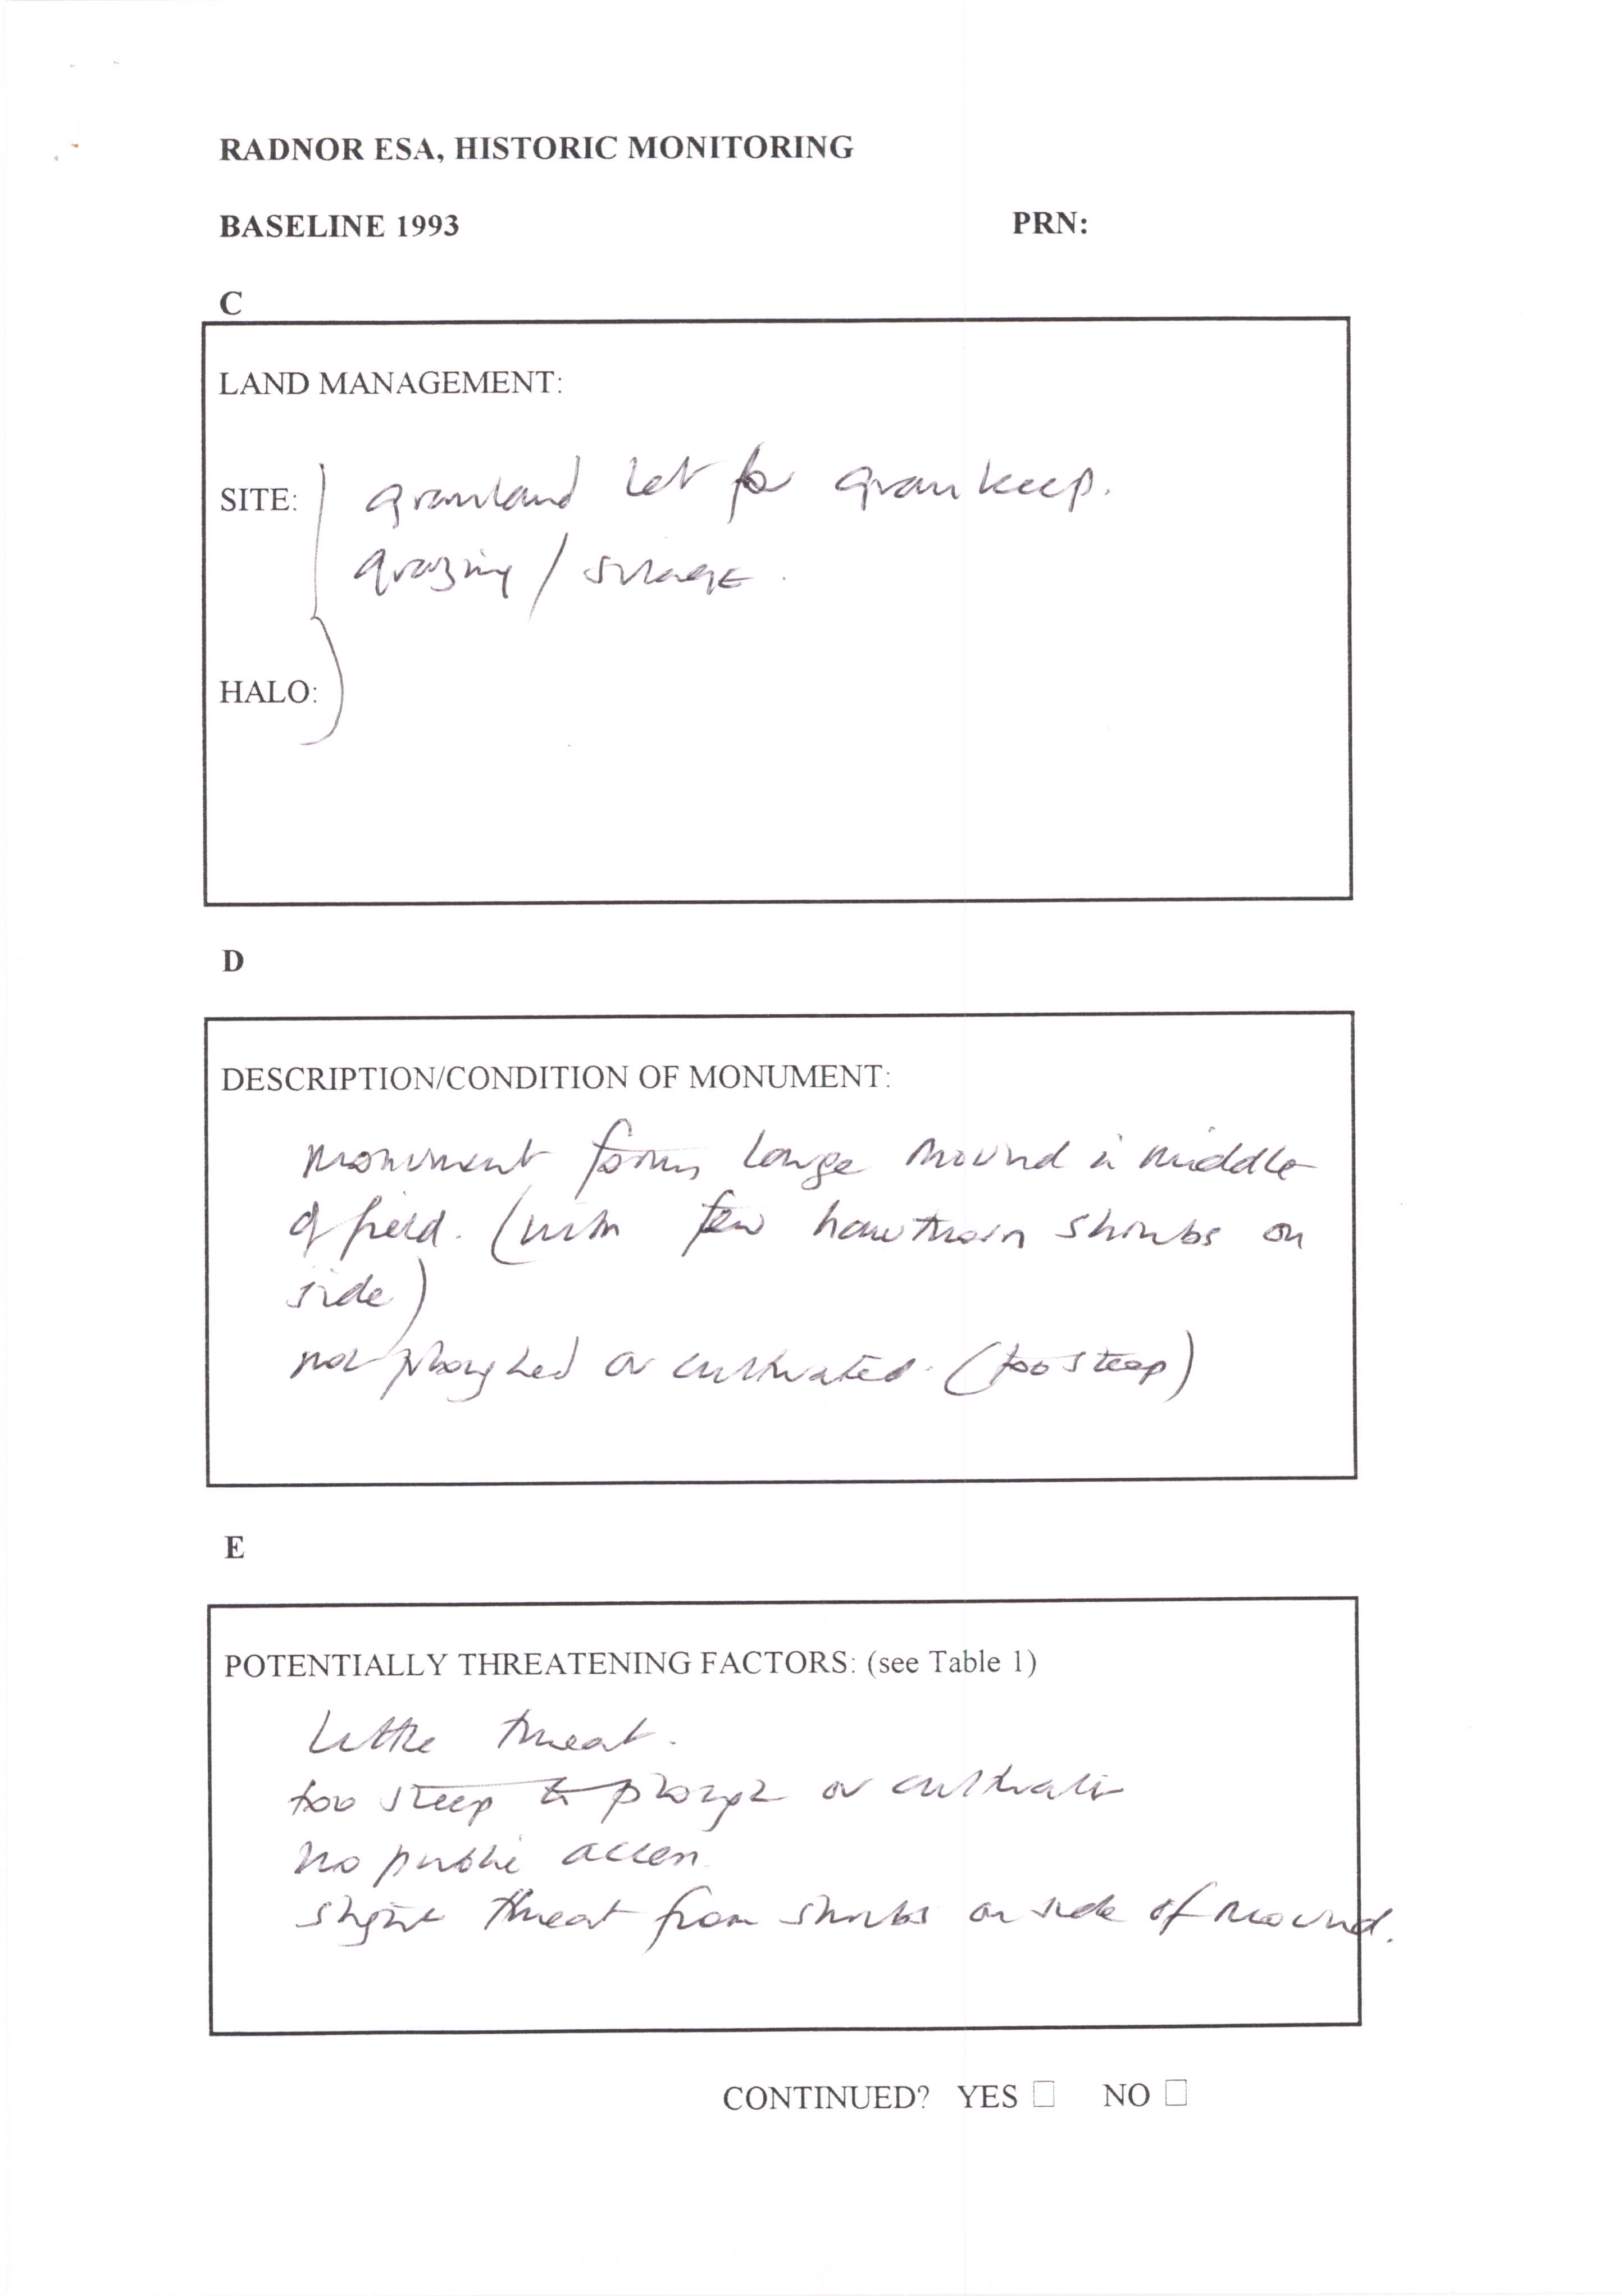 RADNOR ESA, HISTORIC MONITORING
BASELINE 1993 PRN:
C
LAND MANAGEMENT:
SITE: grassland let for grass keep.
grazing / silage.
HALO:
D
DESCRIPTION/CONDITION OF MONUMENT:
Monument forms large mound in middle
of field. (with few hawthorn shrubs on
side)
not ploughed or cultivated. (too steep)
E
POTENTIALLY THREATENING FACTORS: (see Table 1)
Little threat.
too steep to plough or cultivate
no public access
slight threat from shrubs on side of mound.
CONTINUED? YES ☐ NO ☐